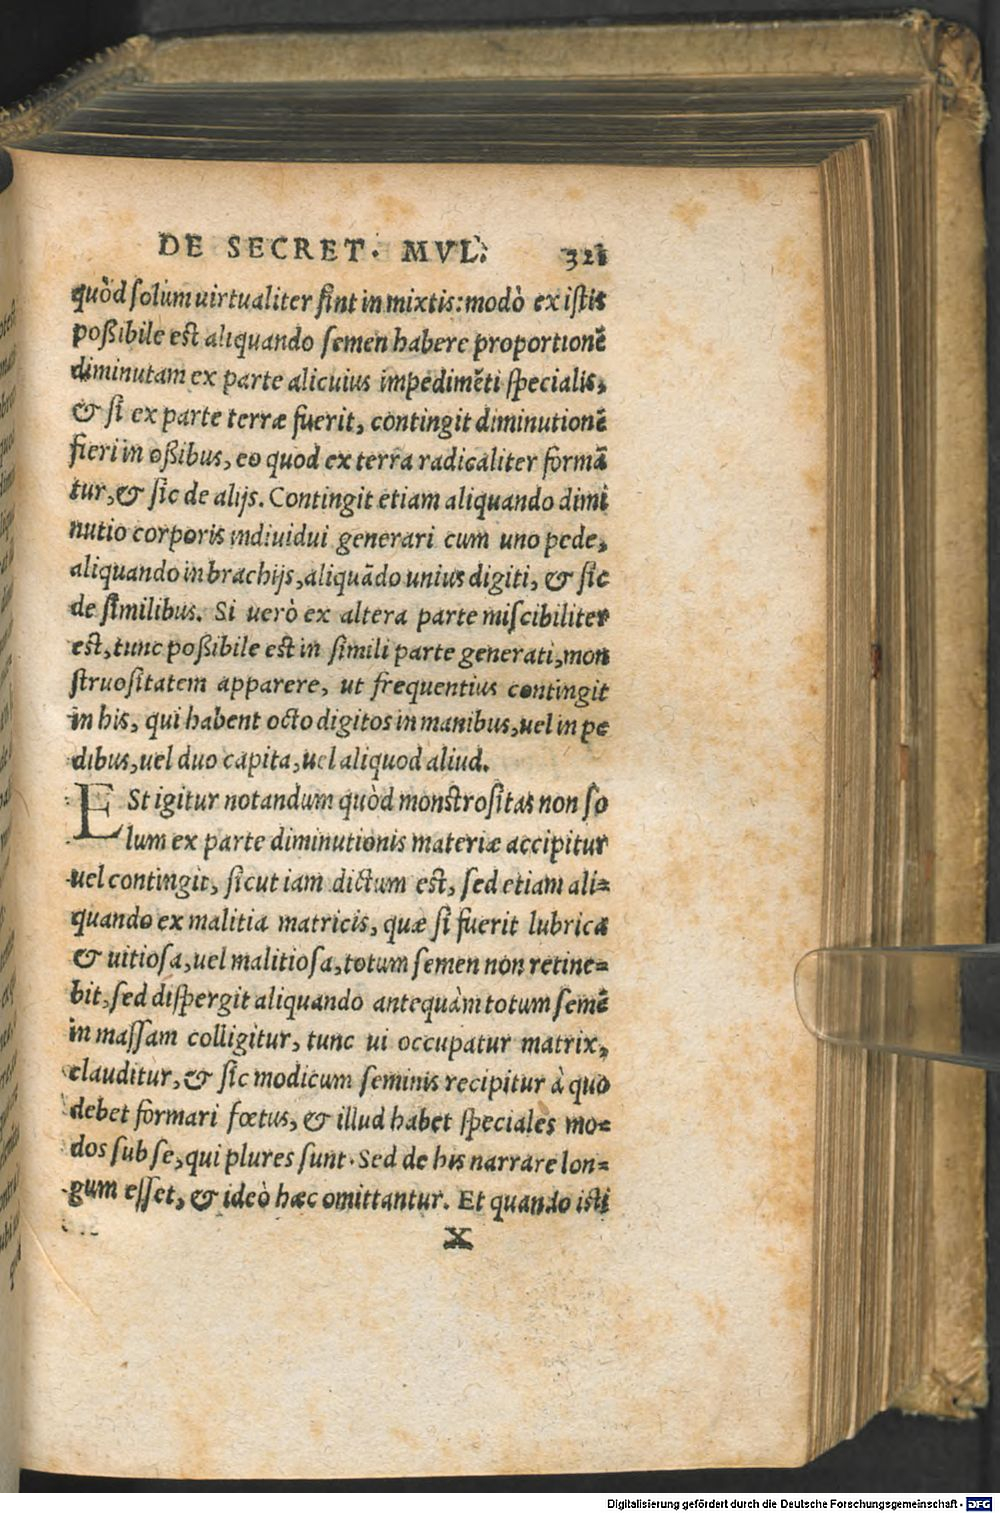 DE SECRET. MVL. 321
quòd solum uirtualiter sint in mixtis: modò ex istis
poßibile est aliquando semen habere proportionẽ
diminutam ex parte alicuius impedimẽti specialis,
& si ex parte terræ fuerit, contingit diminutionẽ
fieri in oßibus, eo quod ex terra radicaliter formã
tur, & sic de alijs. Contingit etiam aliquando dimi
nutio corporis indiuidui generari cum uno pede,
aliquando in brachijs, aliquãdo unius digiti, & sic
de similibus. Si uerò ex altera parte miscibiliter
est, tunc poßibile est in simili parte generati, mon
struositatem apparere, ut frequentius contingit
in his, qui habent octo digitos in manibus, uel in pe
dibus, uel duo capita, uel aliquod aliud.
ESt igitur notandum quòd monstrositas non so
lum ex parte diminutionis materiæ accipitur
uel contingit, sicut iam dictum est, sed etiam ali=
quando ex malitia matricis, quæ si fuerit lubrica
& uitiosa, uel malitiosa, totum semen non retine=
bit, sed dispergit aliquando antequàm totum semẽ
in massam colligitur, tunc ui occupatur matrix,
clauditur, & sic modicum seminis recipitur à quo
debet formari fœtus, & illud habet speciales mo=
dos sub se, qui plures sunt. Sed de his narrare lon=
gum esset, & ideò hæc omittantur. Et quando isti
X
Digitalisierung gefördert durch die Deutsche Forschungsgemeinschaft - DFG